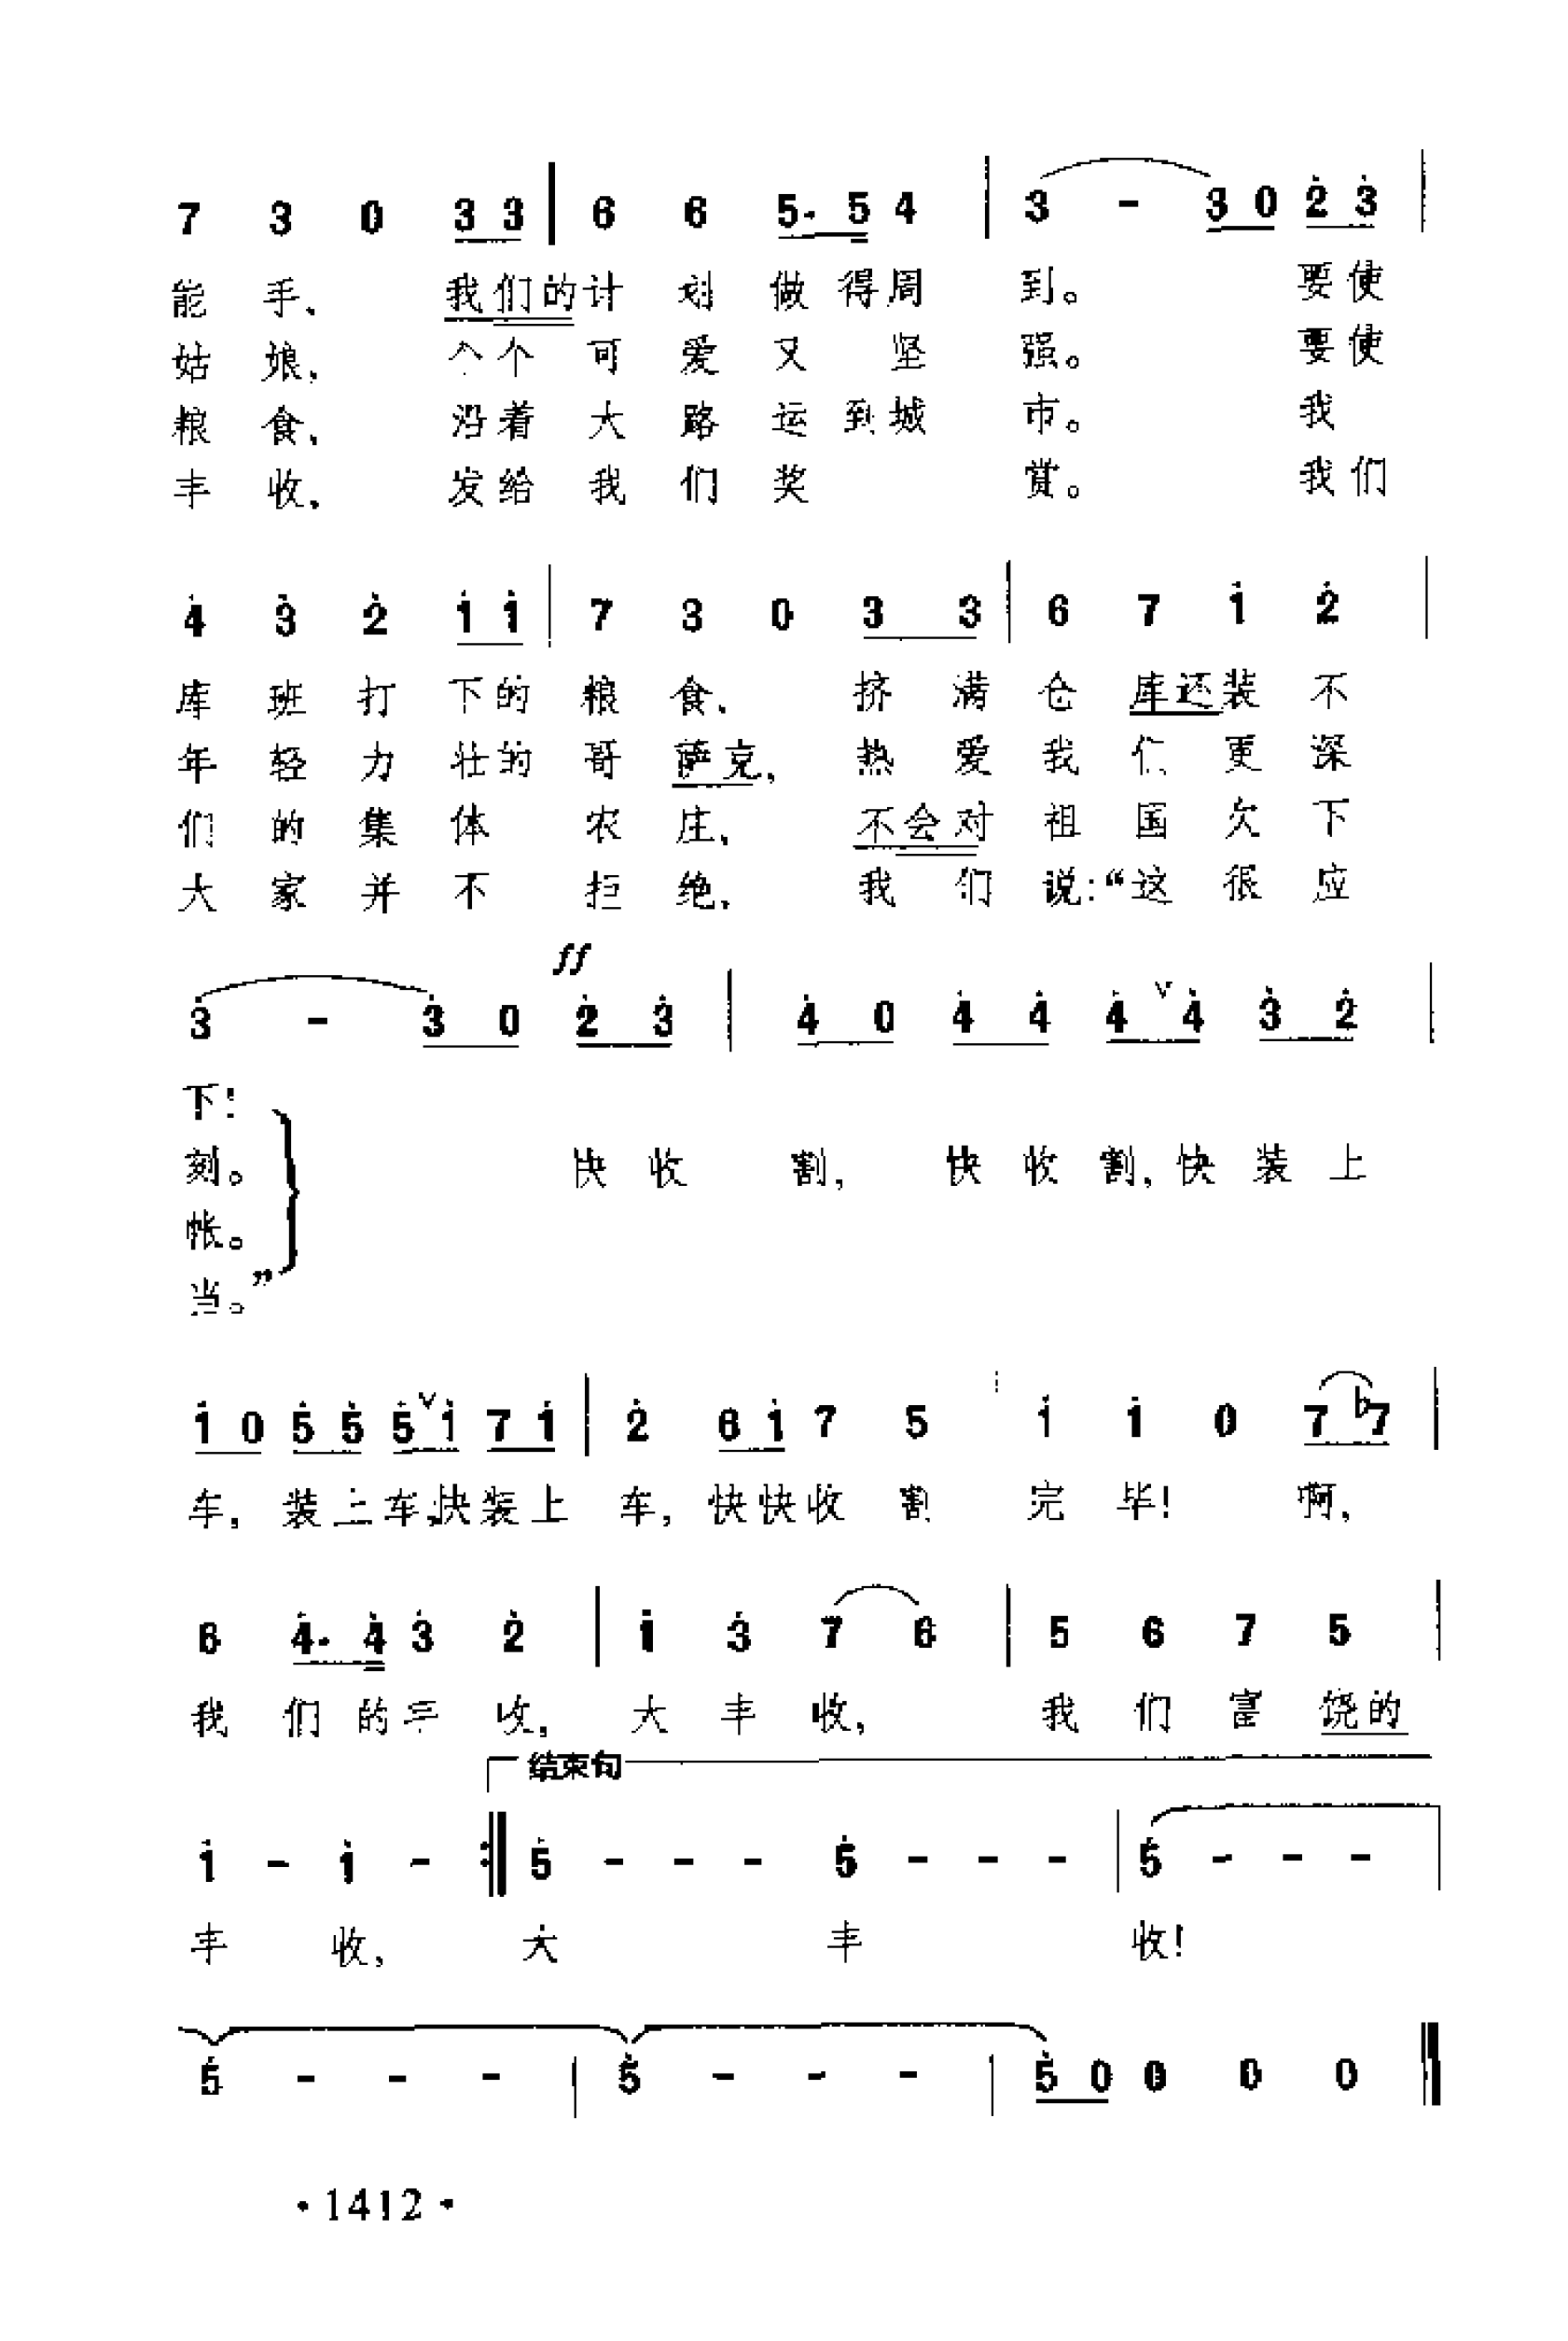 7 3 0 3 3 | 6 6 5· 5 4 | 3 - 3 0 2̇ 3̇ |
能 手, 我们的计 划 做 得周 到。 要使
姑 娘, 个个 可 爱 又 坚 强。 要使
粮 食, 沿着 大 路 运 到城 市。 我
丰 收, 发给 我 们 奖 赏。 我们
4̇ 3̇ 2̇ 1̇ 1̇ | 7 3 0 3 3 | 6 7 1̇ 2̇ |
库 班 打 下的 粮 食, 挤 满 仓 库还装 不
年 轻 力 壮的 哥 萨克, 热 爱 我 们 更 深
们 的 集 体 农 庄, 不会对 祖 国 欠 下
大 家 并 不 拒 绝, 我 们 说:“这 很 应
ff
3̇ - 3̇ 0 2̇ 3̇ | 4̇ 0 4̇ 4̇ 4̇ ∨ 4̇ 3̇ 2̇ |
下!
刻。 快 收 割, 快 收 割,快 装 上
帐。
当。”
1̇ 0 5̇ 5̇ 5̇ ∨ 1̇ 7 1̇ | 2̇ 6 1̇ 7 5 | 1̇ 1̇ 0 7 ♭7 |
车, 装上车,快装上 车, 快快收 割 完 毕! 啊,
6 4̇· 4̇ 3̇ 2̇ | 1̇ 3̇ 7 6 | 5 6 7 5 |
我 们 的丰 收, 大 丰 收, 我 们 富 饶的
结束句
1̇ - 1̇ - :‖ 5̇ - - - 5̇ - - - | 5̇ - - - |
丰 收, 大 丰 收!
5̇ - - - | 5̇ - - - | 5̇ 0 0 0 0 ‖
·1412·